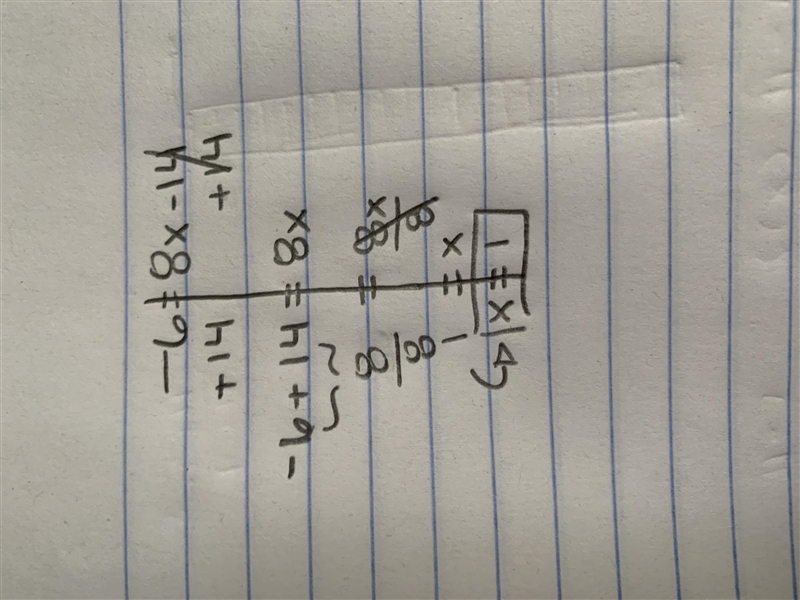 -6 = 8x - 14
+14 +14
-6 + 14 = 8x
8 = 8x
8 8
1 = x
x = 1